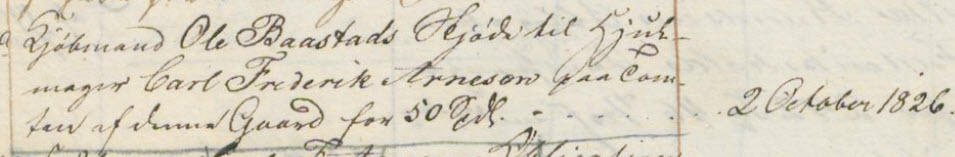 Kjøbmand Ole Baastads Skjøde til Hjul-
mager Carl Frederik Arneson paa Tom-
ten af denne Gaard for 50 Spd. - - - - - - - 2 October 1826.